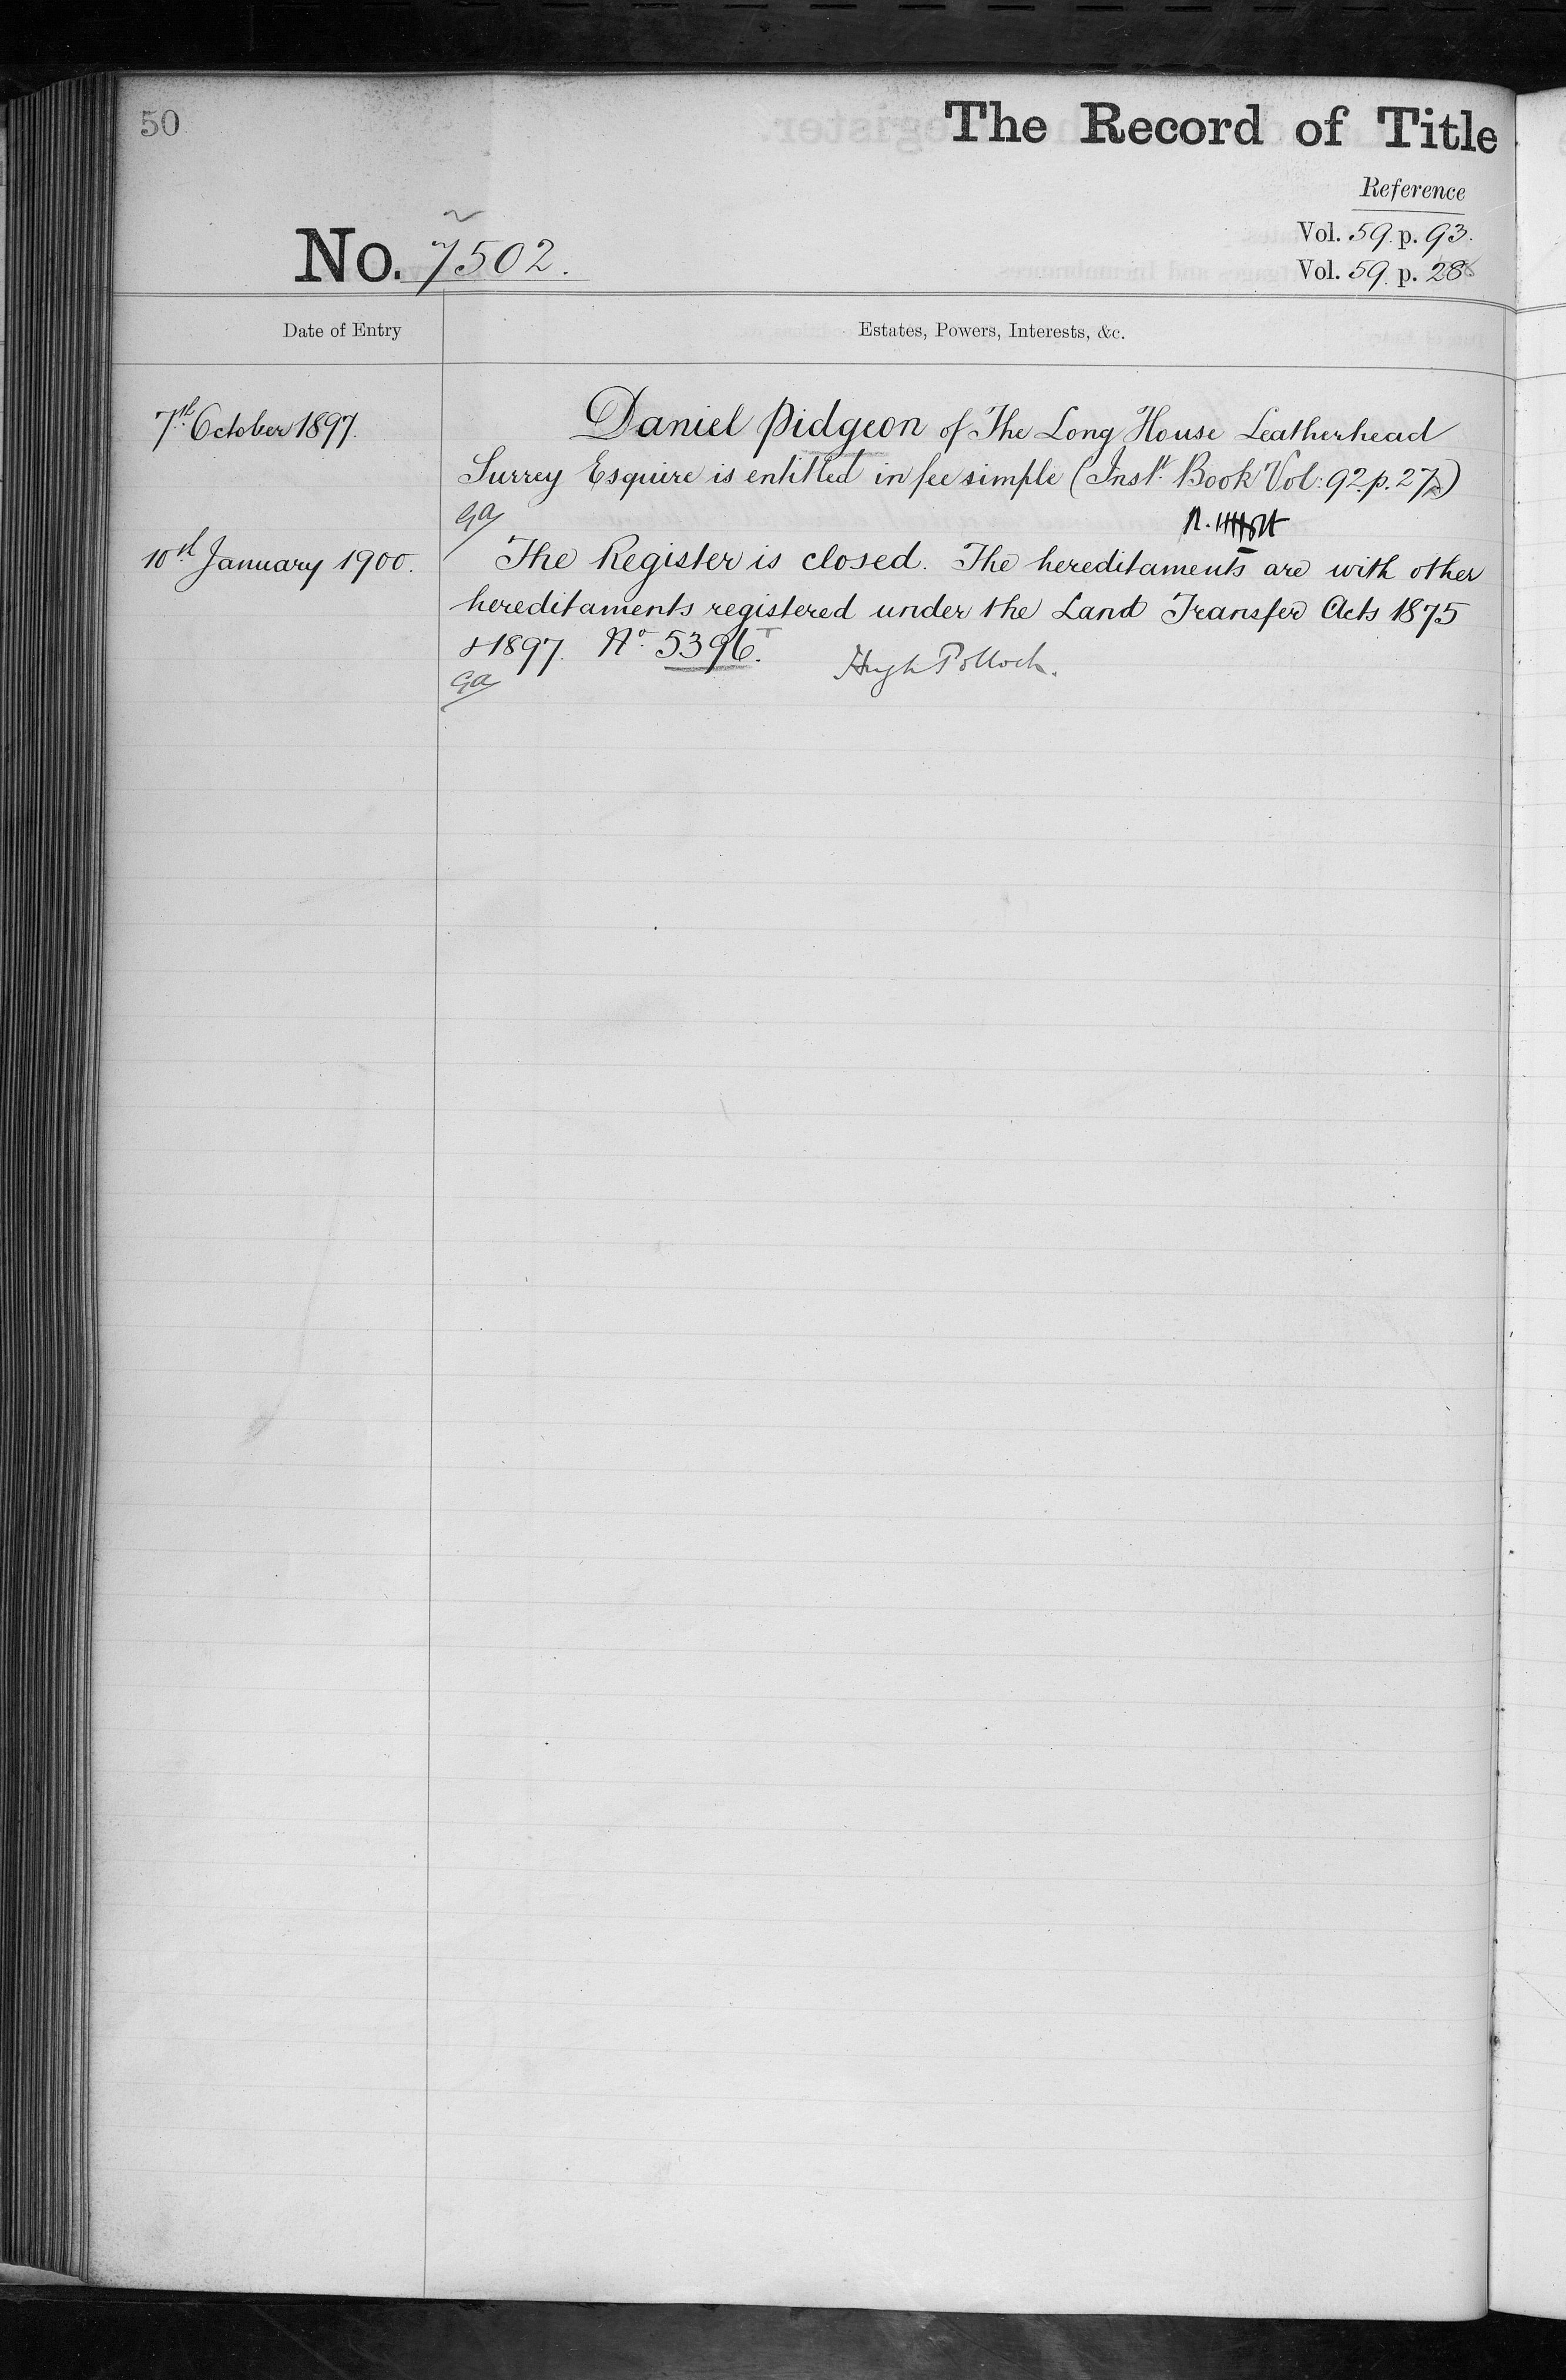 50
The Record of Title
Reference
No. 7502.
Vol. 59. p. 93.
Vol. 59. p. 28
Date of Entry
Estates, Powers, Interests, &c.
7th October 1897.
Daniel Pidgeon of The Long House Leatherhead
Surrey Esquire is entitled in fee simple (Inst. Book Vol: 92. p. 27)
Ga
10th January 1900.
The Register is closed. The hereditaments are with other
hereditaments registered under the Land Transfer Acts 1875
& 1897. No. 5396.
Hugh Pollock.
Ga